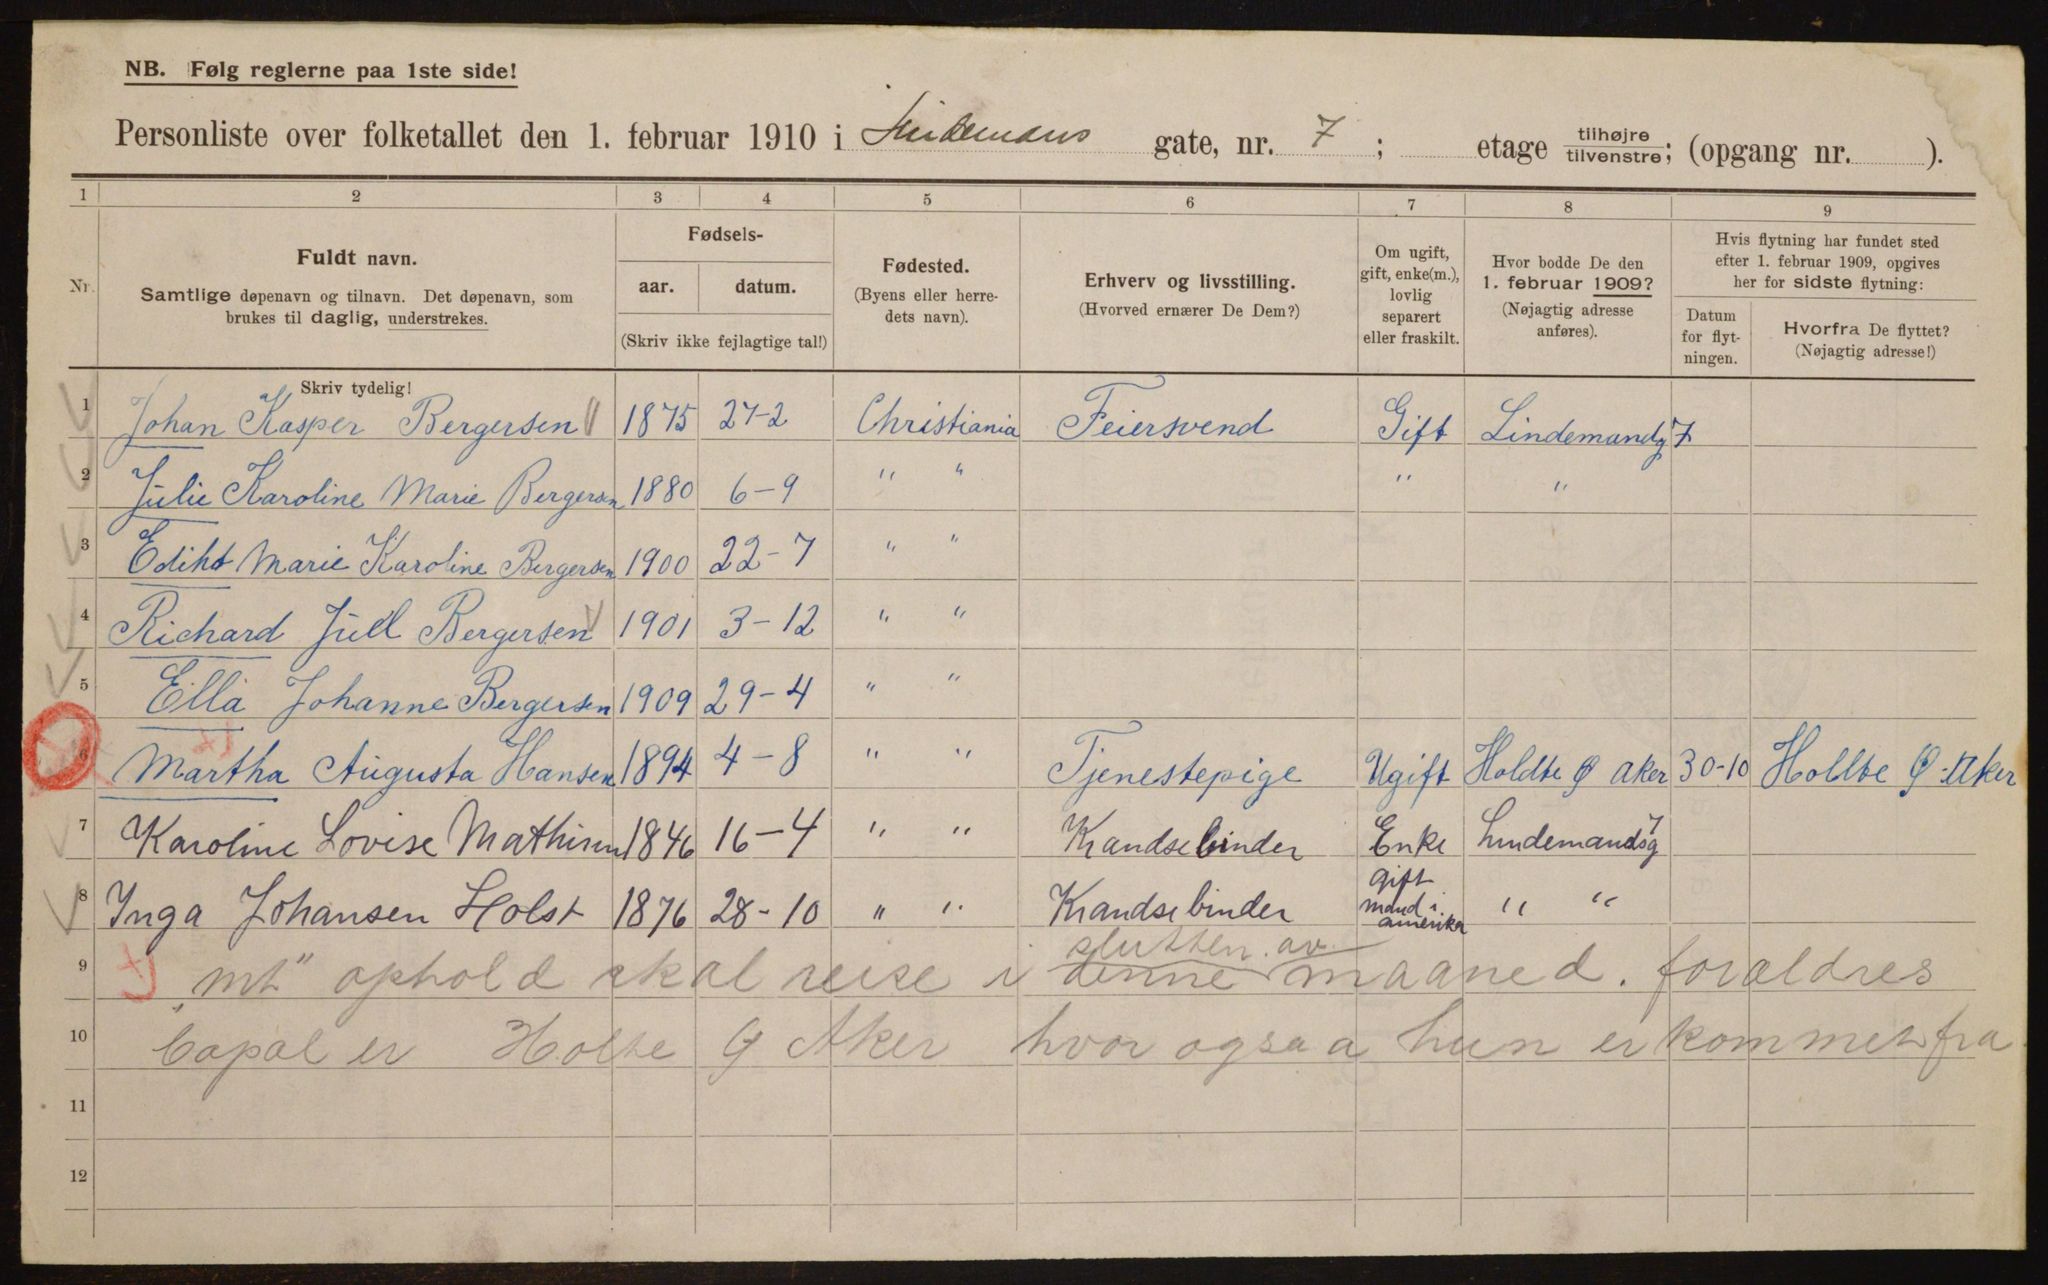 NB. Følg reglerne paa 1ste side!
Personliste over folketallet den 1. februar 1910 i Lindemans gate, nr. 7 ; etage tilhøjre tilvenstre; (opgang nr. ).
1 2 3 4 5 6 7 8 9
Nr.
Fuldt navn.
Samtlige døpenavn og tilnavn. Det døpenavn, som
brukes til daglig, understrekes.
Skriv tydelig!
Fødsels-
aar. datum.
(Skriv ikke fejlagtige tal!)
Fødested.
(Byens eller herre-
dets navn).
Erhverv og livsstilling.
(Hvorved ernærer De Dem?)
Om ugift,
gift, enke(m.),
lovlig
separert
eller fraskilt.
Hvor bodde De den
1. februar 1909?
(Nøjagtig adresse
anføres).
Hvis flytning har fundet sted
efter 1. februar 1909, opgives
her for sidste flytning:
Datum
for flyt-
ningen.
Hvorfra De flyttet?
(Nøjagtig adresse!)
1 Johan Kasper Bergersen 1875 27-2 Christiania Feiersvend Gift Lindemandg 7
2 Julie Karoline Marie Bergersen 1880 6-9 " " " "
3 Ediht Marie Karoline Bergersen 1900 22-7 " "
4 Richard Juel Bergersen 1901 3-12 " "
5 Ella Johanne Bergersen 1909 29-4 " "
6 Martha Augusta Hansen 1894 4-8 " " Tjenestepige Ugift Holdte Ø Aker 30-10 Hollte Ø. Aker
7 Karoline Lovise Mathisen 1846 16-4 " " Krandsebinder Enke Lindemandsg 7
8 Inga Johansen Holst 1876 28-10 " " Krandsebinder gift mand i amerika " "
slutten av
9 "mt" ophold skal reise i denne maaned. foraldres
10 bopal er Holte Ø Aker hvor ogsaa hun er kommet fra
11
12